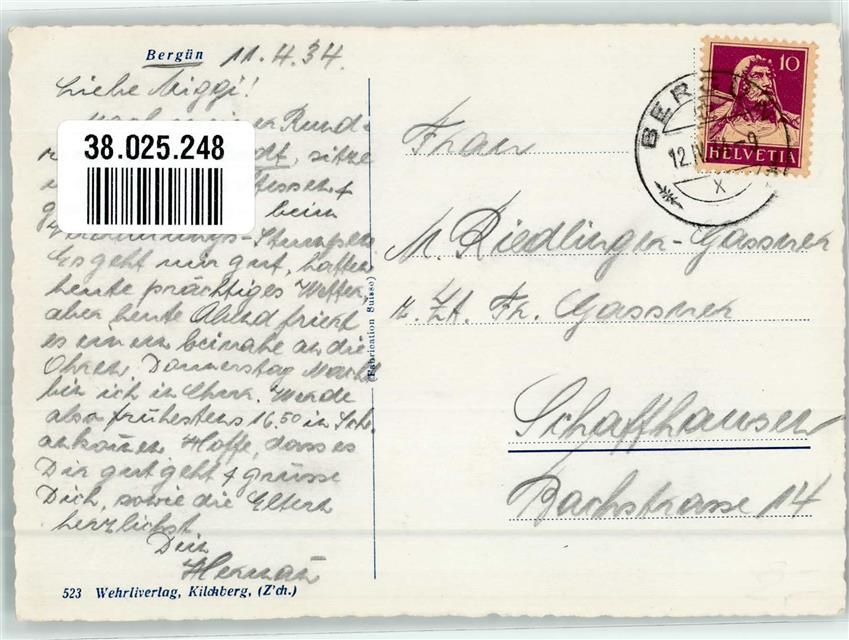 Bergün 11.4.34.
Liebe Miggi!
Nach meiner Rund-
38.025.248
sitze
beim
Es geht mir gut, hatten
heute prächtiges Wetter,
aber heute Abend friert
es einem beinahe an die
Ohren. Donnerstag Nacht
bin ich in Chur. Werde
also frühestens 16.50 in Sch.
ankommen. Hoffe, dass es
Dir gut geht & grüsse
Dich, sowie die Eltern
herzlichst
Dein
Herman
523 Wehrliverlag, Kilchberg, (Z'ch.)
(Fabrication Suisse)
10
HELVETIA
BERG
12.IV.34-9
X
Frau
M. Riedlinger-Gassner
z. Zt. Fr. Gassner
Schaffhausen
Bachstrasse 14